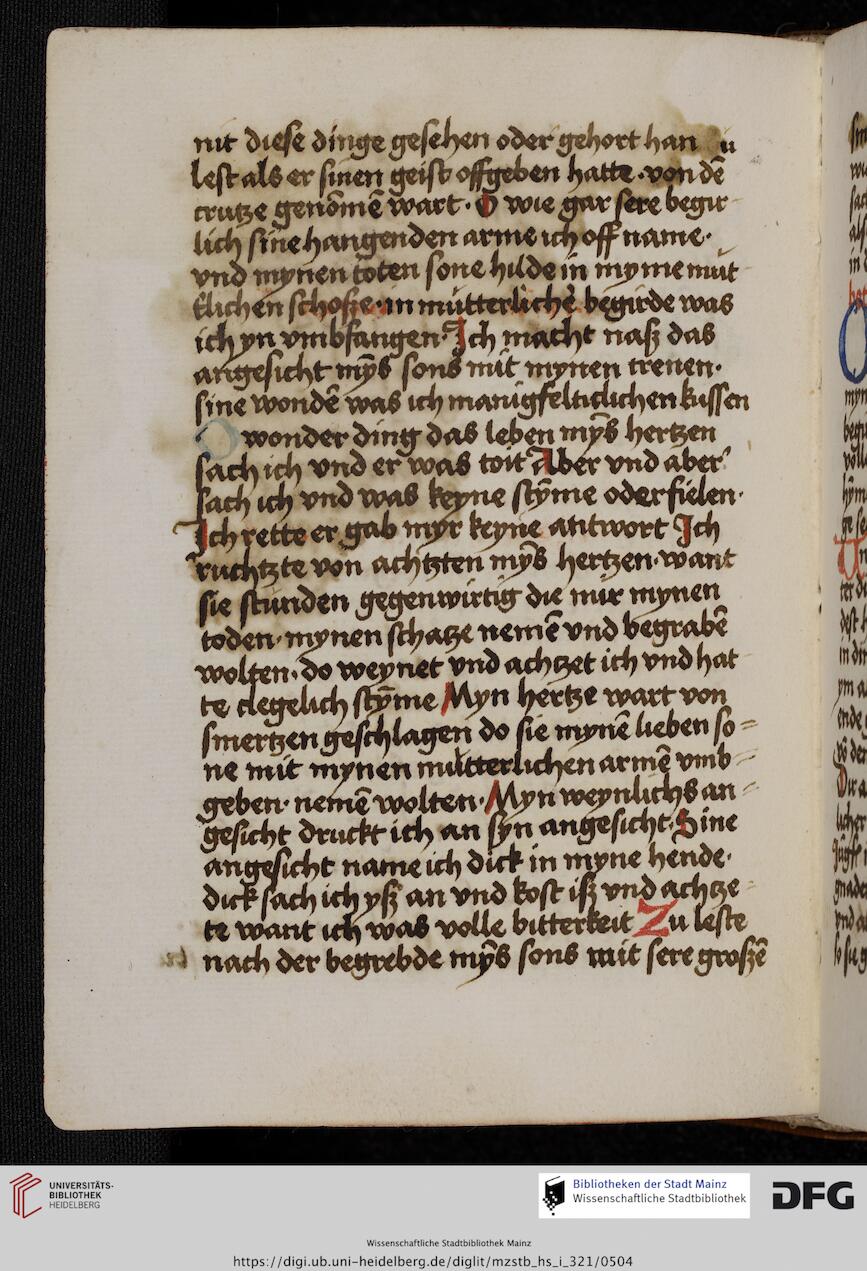 nit diese dinge gesehen oder gehort han
lest als er sinen geist offgeben hatte · von dē
crutze genōmē wart · O wie gar sere begir
lich sine hangenden arme ich off name ·
vnd mynen toten sone hilde in myme mut
tlichen schoße · in mutterlichē begirde was
ich yn vmbfangen · Ich macht naß das
angesicht mȳs sons mit mynen trenen ·
sine wondē was ich manigfelticlichen kussen
O wonder ding das leben mȳs hertzen
sach ich vnd er was toit Aber vnd aber
sach ich vnd was keyne stȳme oder fielen ·
Ich rette er gab myr keyne antwort Ich
ruchtzte von achtzten mȳs hertzen · want
sie stunden gegenwirtig die mir mynen
toden · mynen schatze nemē vnd begrabē
wolten · do weynet vnd achtzet ich vnd hat
te clegelich stȳme Myn hertze wart von
smertzen geschlagen do sie mynē lieben so=
ne mit mynen mutterlichen armē vmb
geben · nemē wolten · Myn weynlichs an=
gesicht druckt ich an syn angesicht · Sine
angesicht name ich dick in myne hende ·
dick sach ich yß an vnd kost iß vnd achtze
te want ich was volle bitterkeit Zu leste
nach der begrebde mȳs sons mit sere großē
UNIVERSITÄTS-
BIBLIOTHEK
HEIDELBERG
Bibliotheken der Stadt Mainz
Wissenschaftliche Stadtbibliothek
DFG
Wissenschaftliche Stadtbibliothek Mainz
https://digi.ub.uni-heidelberg.de/diglit/mzstb_hs_i_321/0504